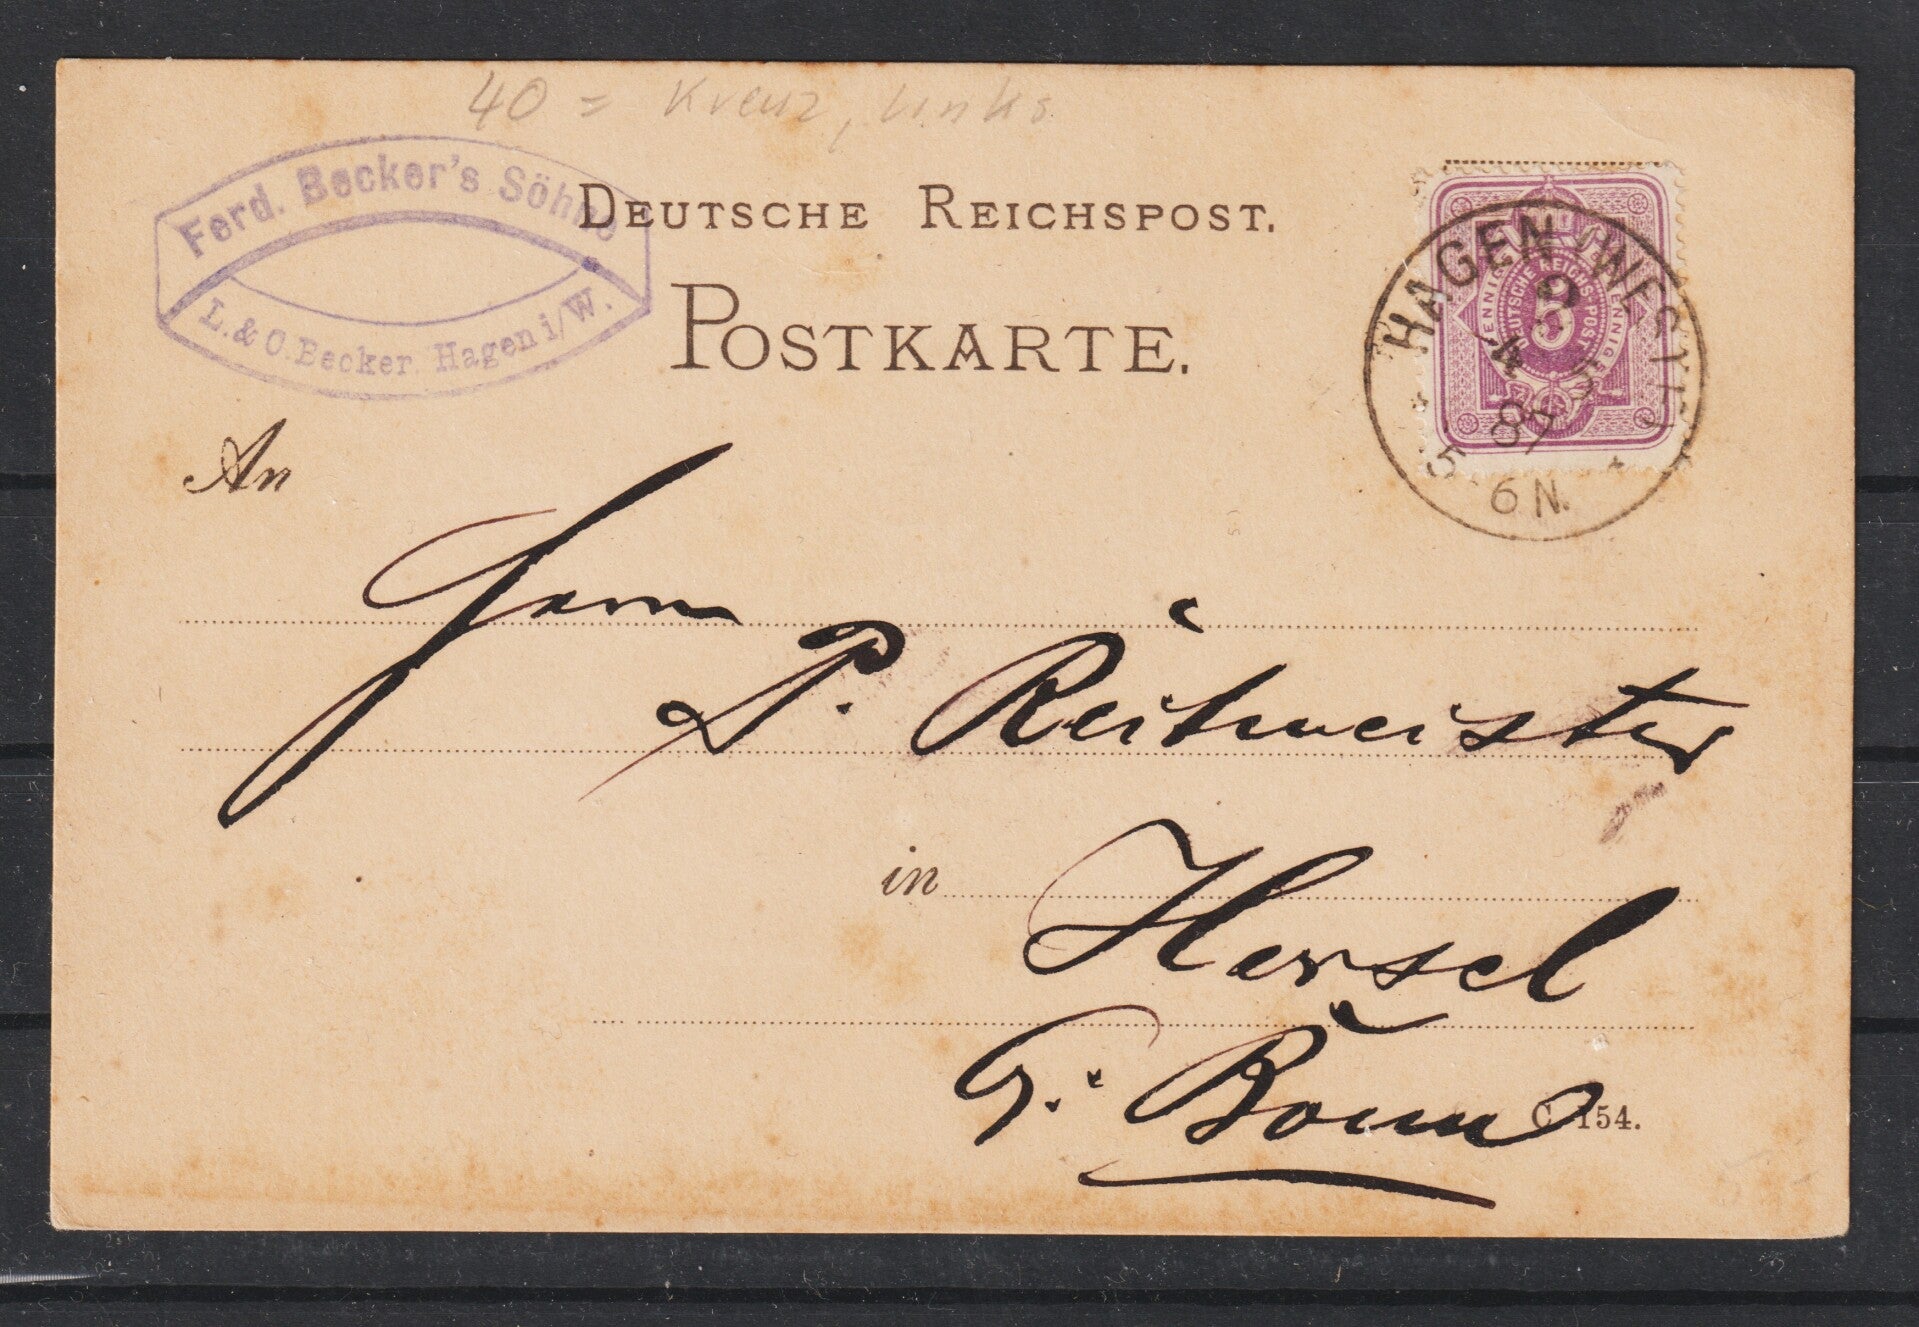 40 = Kreuz, links
Ferd. Becker's Söhne
L. & C. Becker. Hagen i/W.
DEUTSCHE REICHSPOST.
POSTKARTE.
HAGEN (WESTF)
8
4
87
5-6N.
PFENNIG
DEUTSCHE REICHS-POST
PFENNIG
An
Herrn
P. Reitmeister
in Hersel
b. Bonn
C. 154.